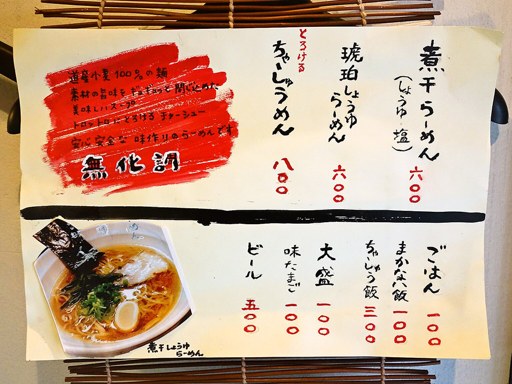 煮干らーめん
(しょうゆ・塩)
六〇〇
琥珀しょうゆ
らーめん
六〇〇
とろける
ちゃーしゅうめん
八〇〇
道産小麦100%の麺
素材の旨味をギュギュッと閉じ込めた
美味しいスープ
トロットロにとろけるチャーシュー
安心安全な味作りのらーめんです
無化調
ごはん
一〇〇
まかない飯
一〇〇
ちゃしゅう飯
三〇〇
大盛
一〇〇
味たまご
一〇〇
ビール
五〇〇
煮干しょうゆ
らーめん